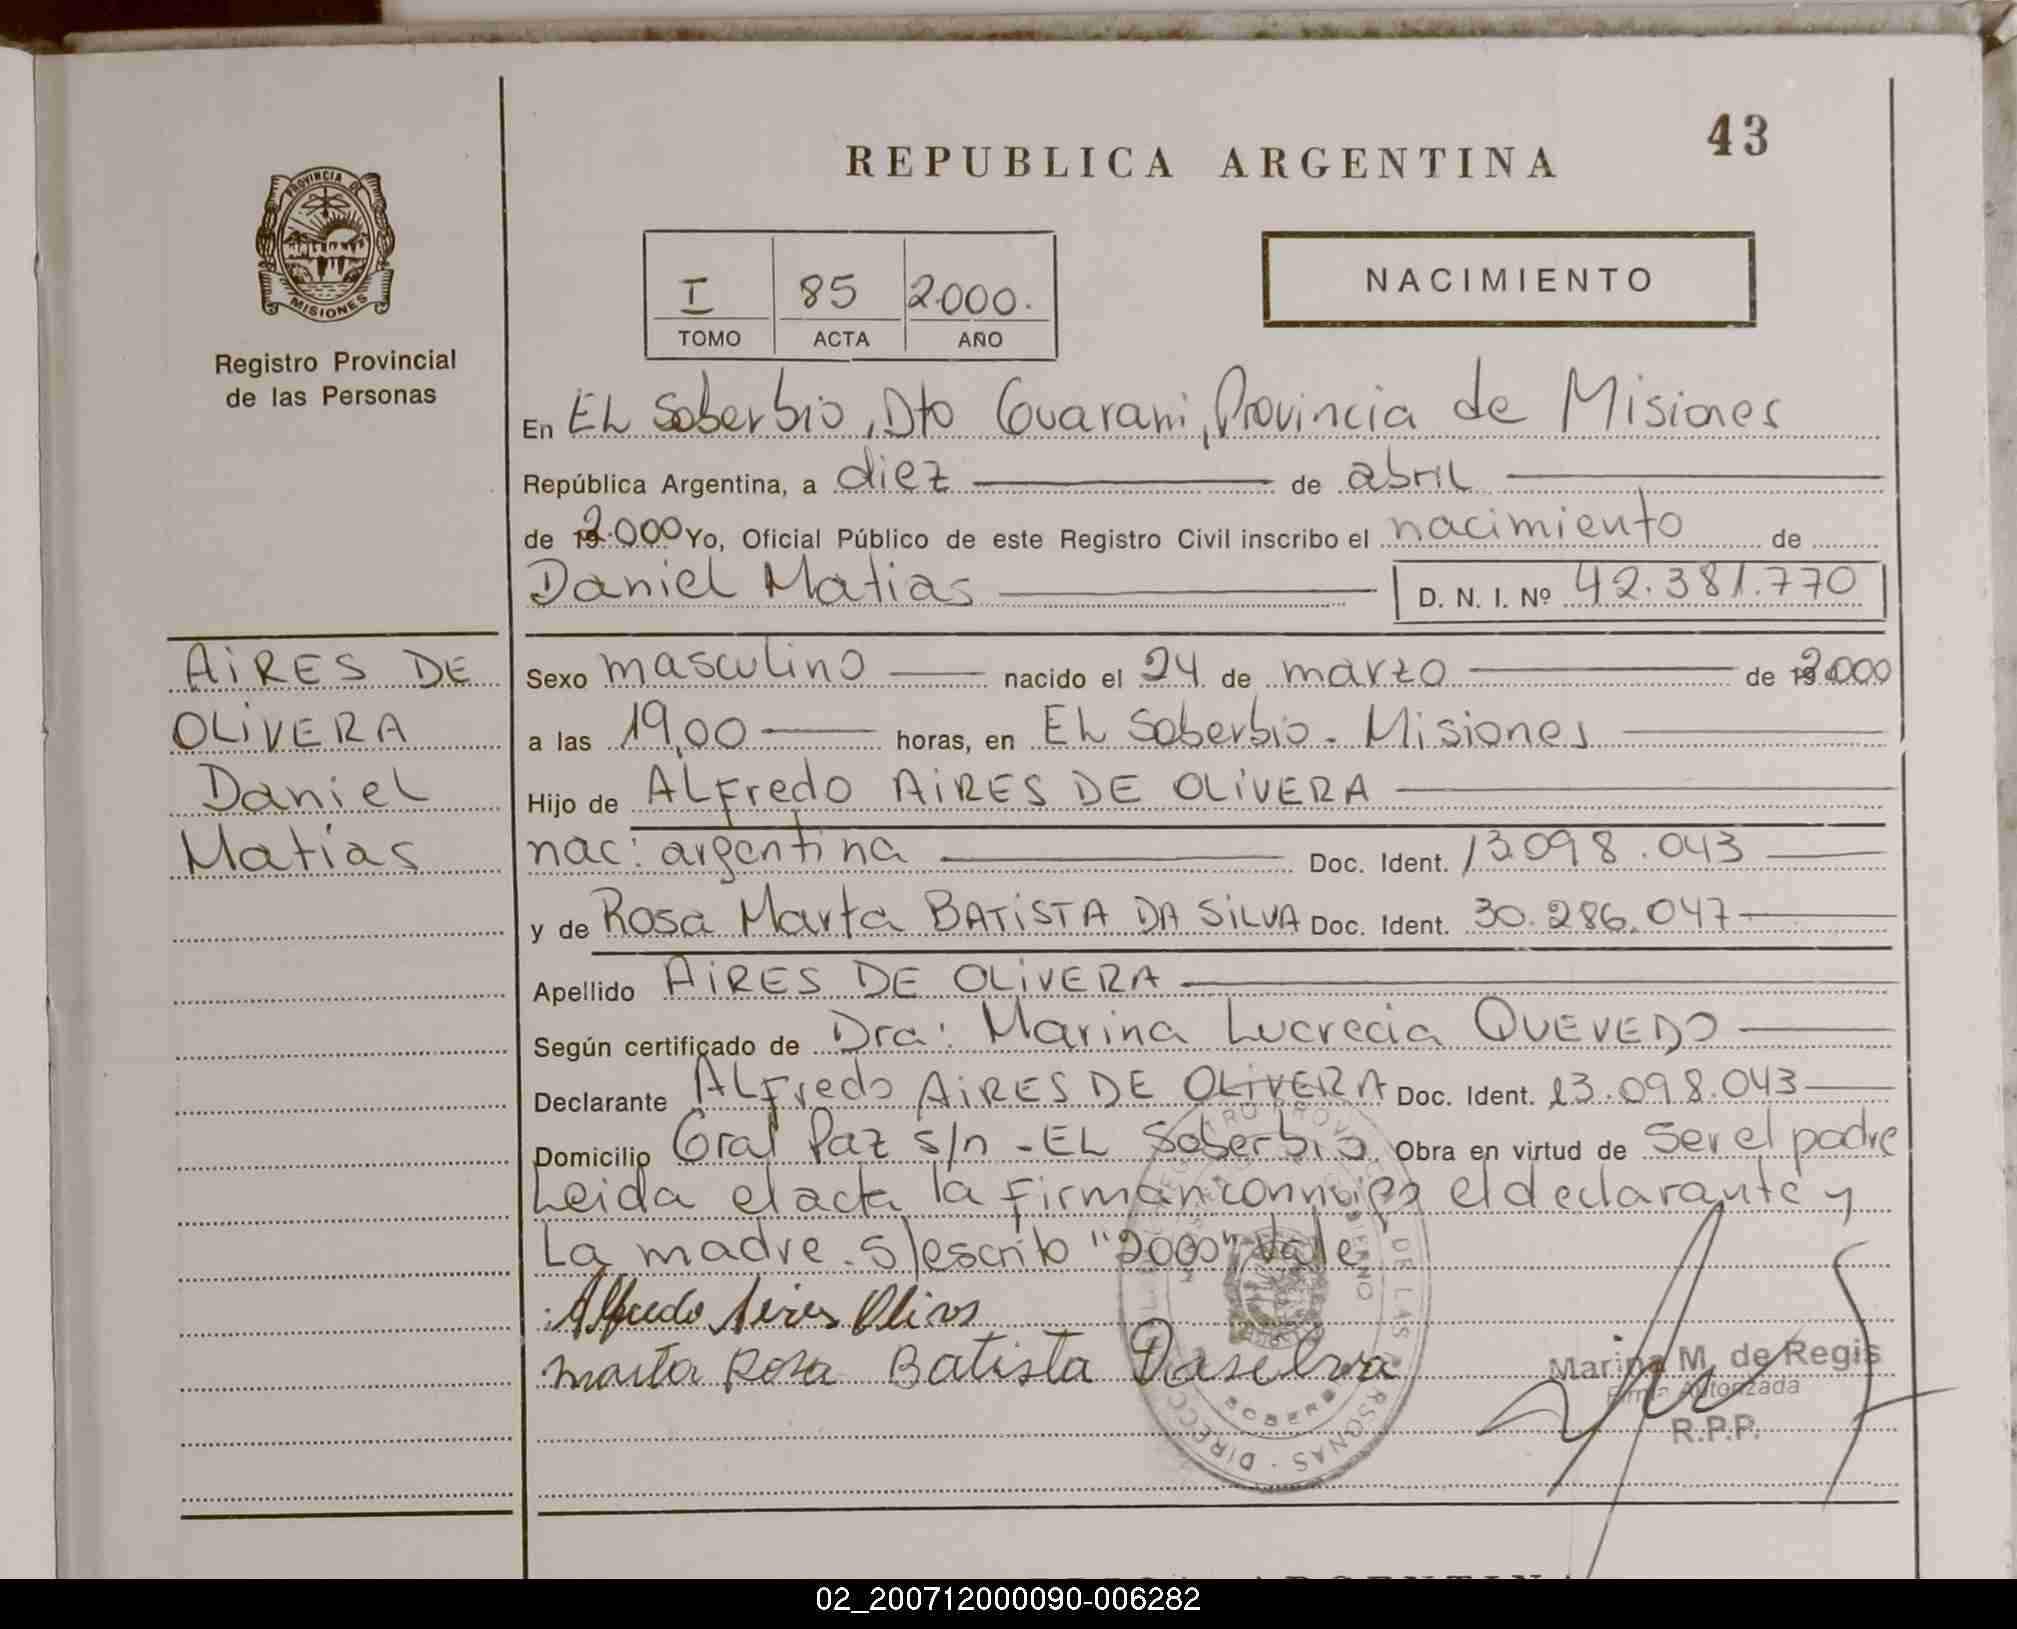 43
REPUBLICA ARGENTINA
PROVINCIA DE
MISIONES
Registro Provincial
de las Personas
I 85 2000.
TOMO ACTA AÑO
NACIMIENTO
En EL Soberbio, Dto Guarani, Provincia de Misiones
República Argentina, a diez de abril
de 2000 Yo, Oficial Público de este Registro Civil inscribo el nacimiento de
Daniel Matias D. N. I. Nº 42.381.770
AiRES DE
OLiVERA
Daniel
Matías
Sexo masculino nacido el 24 de marzo de 2000
a las 19,00 horas, en EL Soberbio - Misiones
Hijo de ALFredo AiRES DE OLiVERA
nac: argentina Doc. Ident. 13.098.043
y de Rosa Marta BATiSTA DA SiLVA Doc. Ident. 30.286.047
Apellido AiRES DE OLiVERA
Según certificado de Dra: Marina Lucrecia QUEVEDO
Declarante ALFredo AiRES DE OLiVERA Doc. Ident. 13.098.043
Domicilio Gral Paz s/n - EL Soberbio Obra en virtud de Ser el padre
Leida el acta la Firman conmigo el declarante y
La madre. S/escrito "2000", Vale
Alfredo Aires Olivs
Marta Rosa Batista Daselva
Marina M. de Regis
Firma Autorizada
R.P.P.
02_200712000090-006282